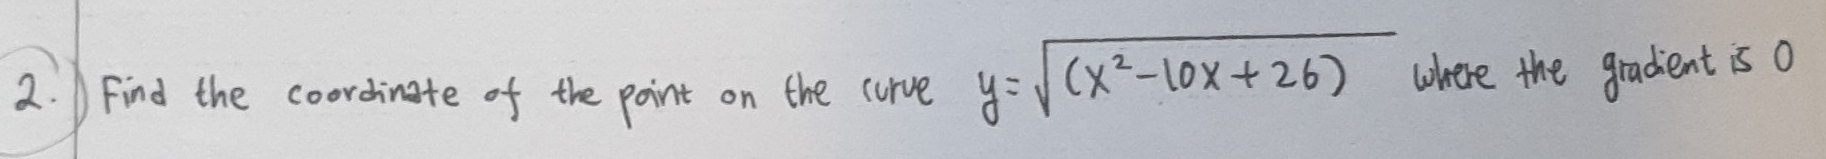 2. Find the coordinate of the point on the curve y=√(x²-10x+26) where the gradient is 0